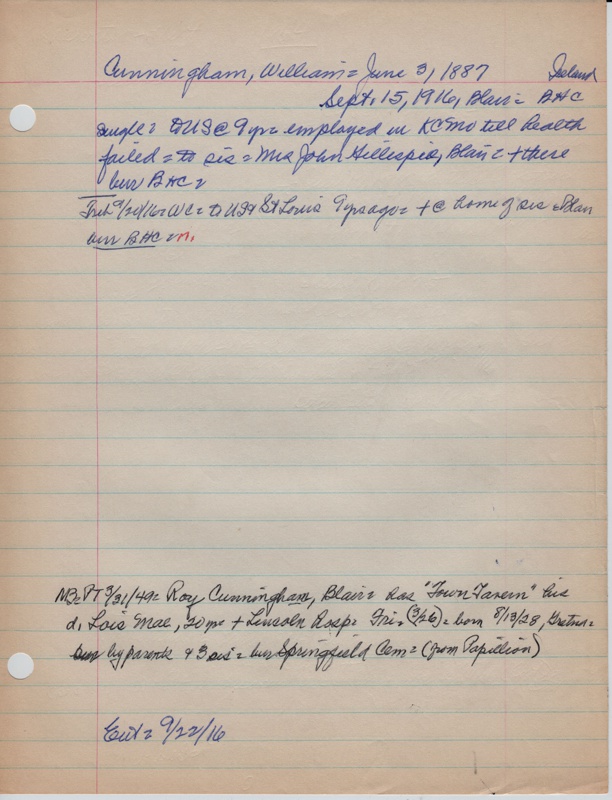 Cunningham, William = June 3, 1887 Ireland
Sept. 15, 1916, Blair = BHC
single = to US @ 9 yr = employed in KC Mo till health
failed = to sis = Mrs John Gillespie, Blair = + there
bur BHC =
Trib 9/20/16 = WC = to US + St Louis 9 yrs ago = + @ home of sis = Blair
bur BHC = M.
MB = PT 3/31/49 = Roy Cunningham, Blair = has "Town Tavern" his
d. Lois Mae, 20 yr = + Lincoln hosp = Fri = (3/26) = born 8/13/28, Gretna =
by parents + 3 sis = bur Springfield Cem = (from Papillion)
Ent = 9/22/16